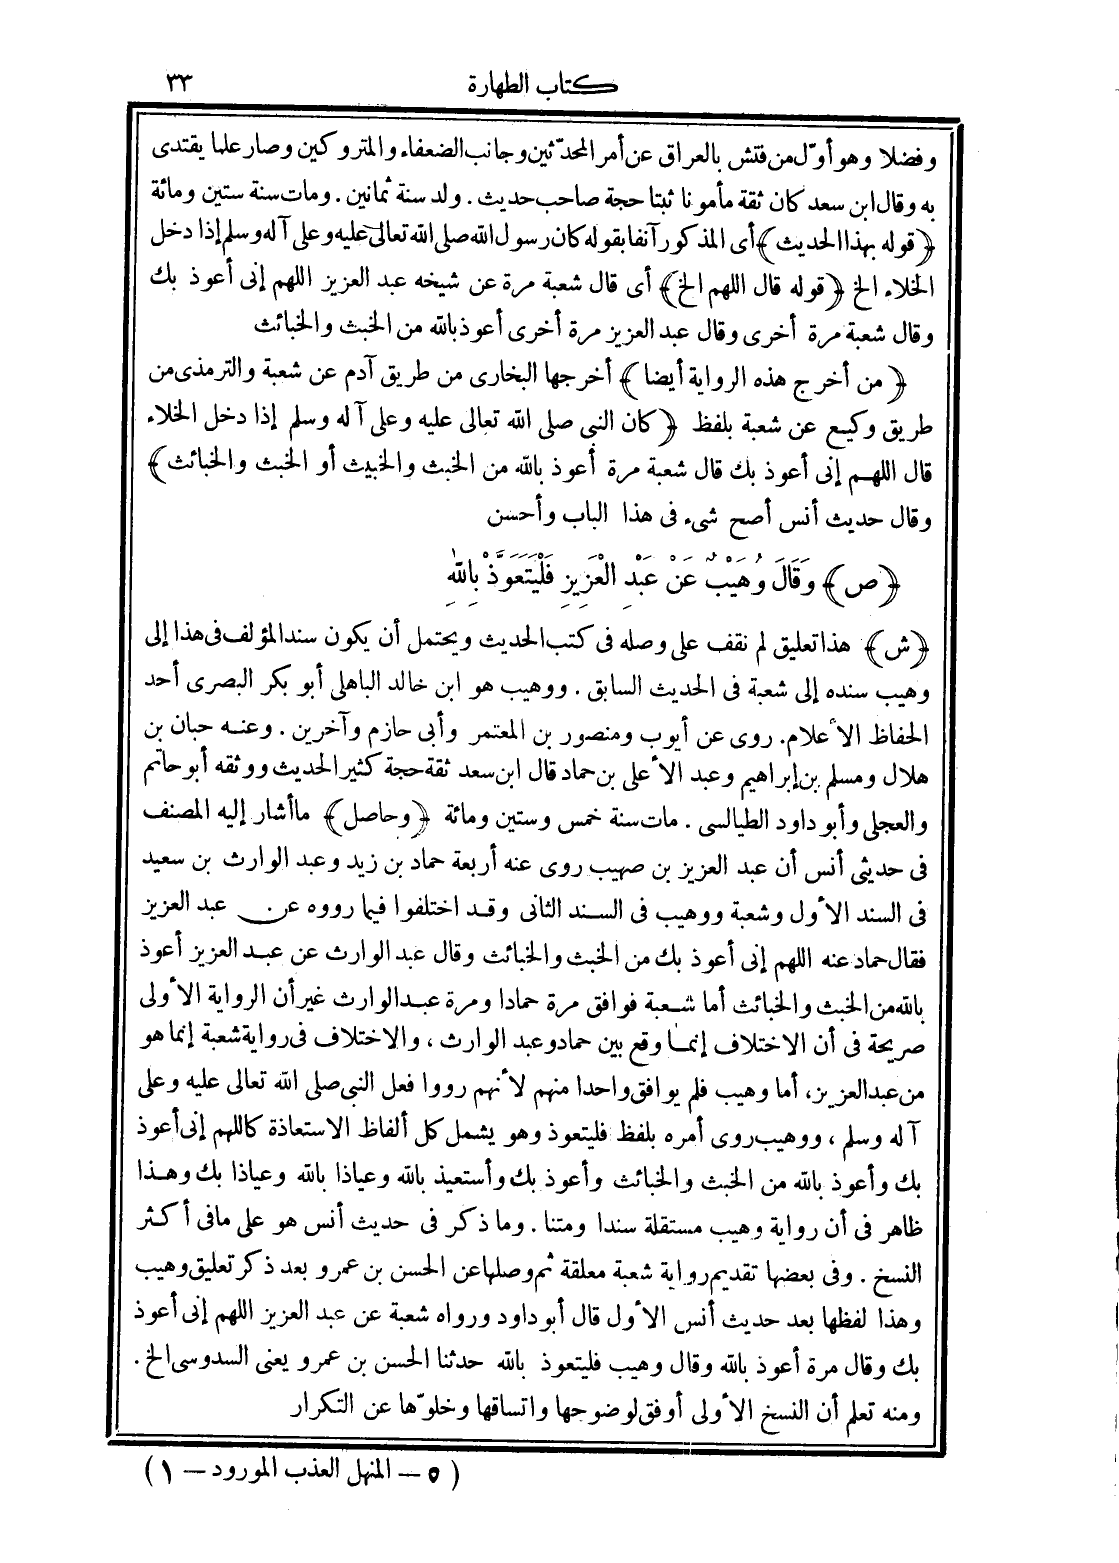 كتاب الطهارة ٣٣
وفضلا وهو أوّل من فتش بالعراق عن أمر المحدّثين وجانب الضعفاء والمتروكين وصار علما يقتدى
به وقال ابن سعد كان ثقة مأمونا ثبتا حجة صاحب حديث . ولد سنة ثمانين . ومات سنة ستين ومائة
﴿قوله بهذا الحديث﴾ أى المذكور آنفا بقوله كان رسول الله صلى الله تعالى عليه وعلى آله وسلم إذا دخل
الخلاء الخ ﴿قوله قال اللهم الخ﴾ أى قال شعبة مرة عن شيخه عبد العزيز اللهم إنى أعوذ بك
وقال شعبة مرة أخرى وقال عبد العزيز مرة أخرى أعوذ بالله من الخبث والخبائث
﴿من أخرج هذه الرواية أيضا﴾ أخرجها البخارى من طريق آدم عن شعبة والترمذى من
طريق وكيع عن شعبة بلفظ ﴿كان النبى صلى الله تعالى عليه وعلى آله وسلم إذا دخل الخلاء
قال اللهم إنى أعوذ بك قال شعبة مرة أعوذ بالله من الخبث والخبيث أو الخبث والخبائث﴾
وقال حديث أنس أصح شىء فى هذا الباب وأحسن
﴿ص﴾ وَقَالَ وُهَيْبٌ عَنْ عَبْدِ الْعَزِيزِ فَلْيَتَعَوَّذْ بِاللهِ
﴿ش﴾ هذا تعليق لم نقف على وصله فى كتب الحديث ويحتمل أن يكون سند المؤلف فى هذا إلى
وهيب سنده إلى شعبة فى الحديث السابق . ووهيب هو ابن خالد الباهلى أبو بكر البصرى أحد
الحفاظ الأعلام. روى عن أيوب ومنصور بن المعتمر وأبى حازم وآخرين . وعنه حبان بن
هلال ومسلم بن إبراهيم وعبد الأعلى بن حماد قال ابن سعد ثقة حجة كثير الحديث ووثقه أبو حاتم
والعجلى وأبو داود الطيالسى . مات سنة خمس وستين ومائة ﴿وحاصل﴾ ما أشار إليه المصنف
فى حديثى أنس أن عبد العزيز بن صهيب روى عنه أربعة حماد بن زيد وعبد الوارث بن سعيد
فى السند الأول وشعبة ووهيب فى السند الثانى وقد اختلفوا فيما رووه عن عبد العزيز
فقال حماد عنه اللهم إنى أعوذ بك من الخبث والخبائث وقال عبد الوارث عن عبد العزيز أعوذ
بالله من الخبث والخبائث أما شعبة فوافق مرة حمادا ومرة عبد الوارث غير أن الرواية الأولى
صريحة فى أن الاختلاف إنما وقع بين حماد وعبد الوارث ، والاختلاف فى رواية شعبة إنما هو
من عبد العزيز، أما وهيب فلم يوافق واحدا منهم لأنهم رووا فعل النبى صلى الله تعالى عليه وعلى
آله وسلم ، ووهيب روى أمره بلفظ فليتعوذ وهو يشمل كل ألفاظ الاستعاذة كاللهم إنى أعوذ
بك وأعوذ بالله من الخبث والخبائث وأعوذ بك وأستعيذ بالله وعياذا بالله وعياذا بك وهذا
ظاهر فى أن رواية وهيب مستقلة سندا ومتنا . وما ذكر فى حديث أنس هو على مافى أكثر
النسخ . وفى بعضها تقديم رواية شعبة معلقة ثم وصلها عن الحسن بن عمرو بعد ذكر تعليق وهيب
وهذا لفظها بعد حديث أنس الأول قال أبو داود ورواه شعبة عن عبد العزيز اللهم إنى أعوذ
بك وقال مرة أعوذ بالله وقال وهيب فليتعوذ بالله حدثنا الحسن بن عمرو يعنى السدوسى الخ .
ومنه تعلم أن النسخ الأولى أوفق لوضوحها واتساقها وخلوّها عن التكرار
(٥ — المنهل العذب المورود — ١)